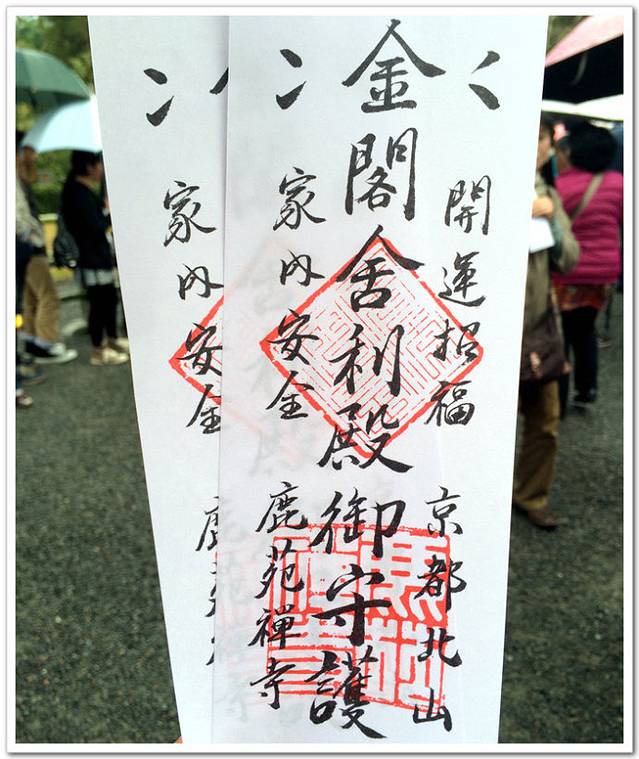 開運招福 京都北山
金閣舎利殿御守護
家内安全 鹿苑禪寺
家内安全